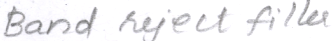 Band reject filter